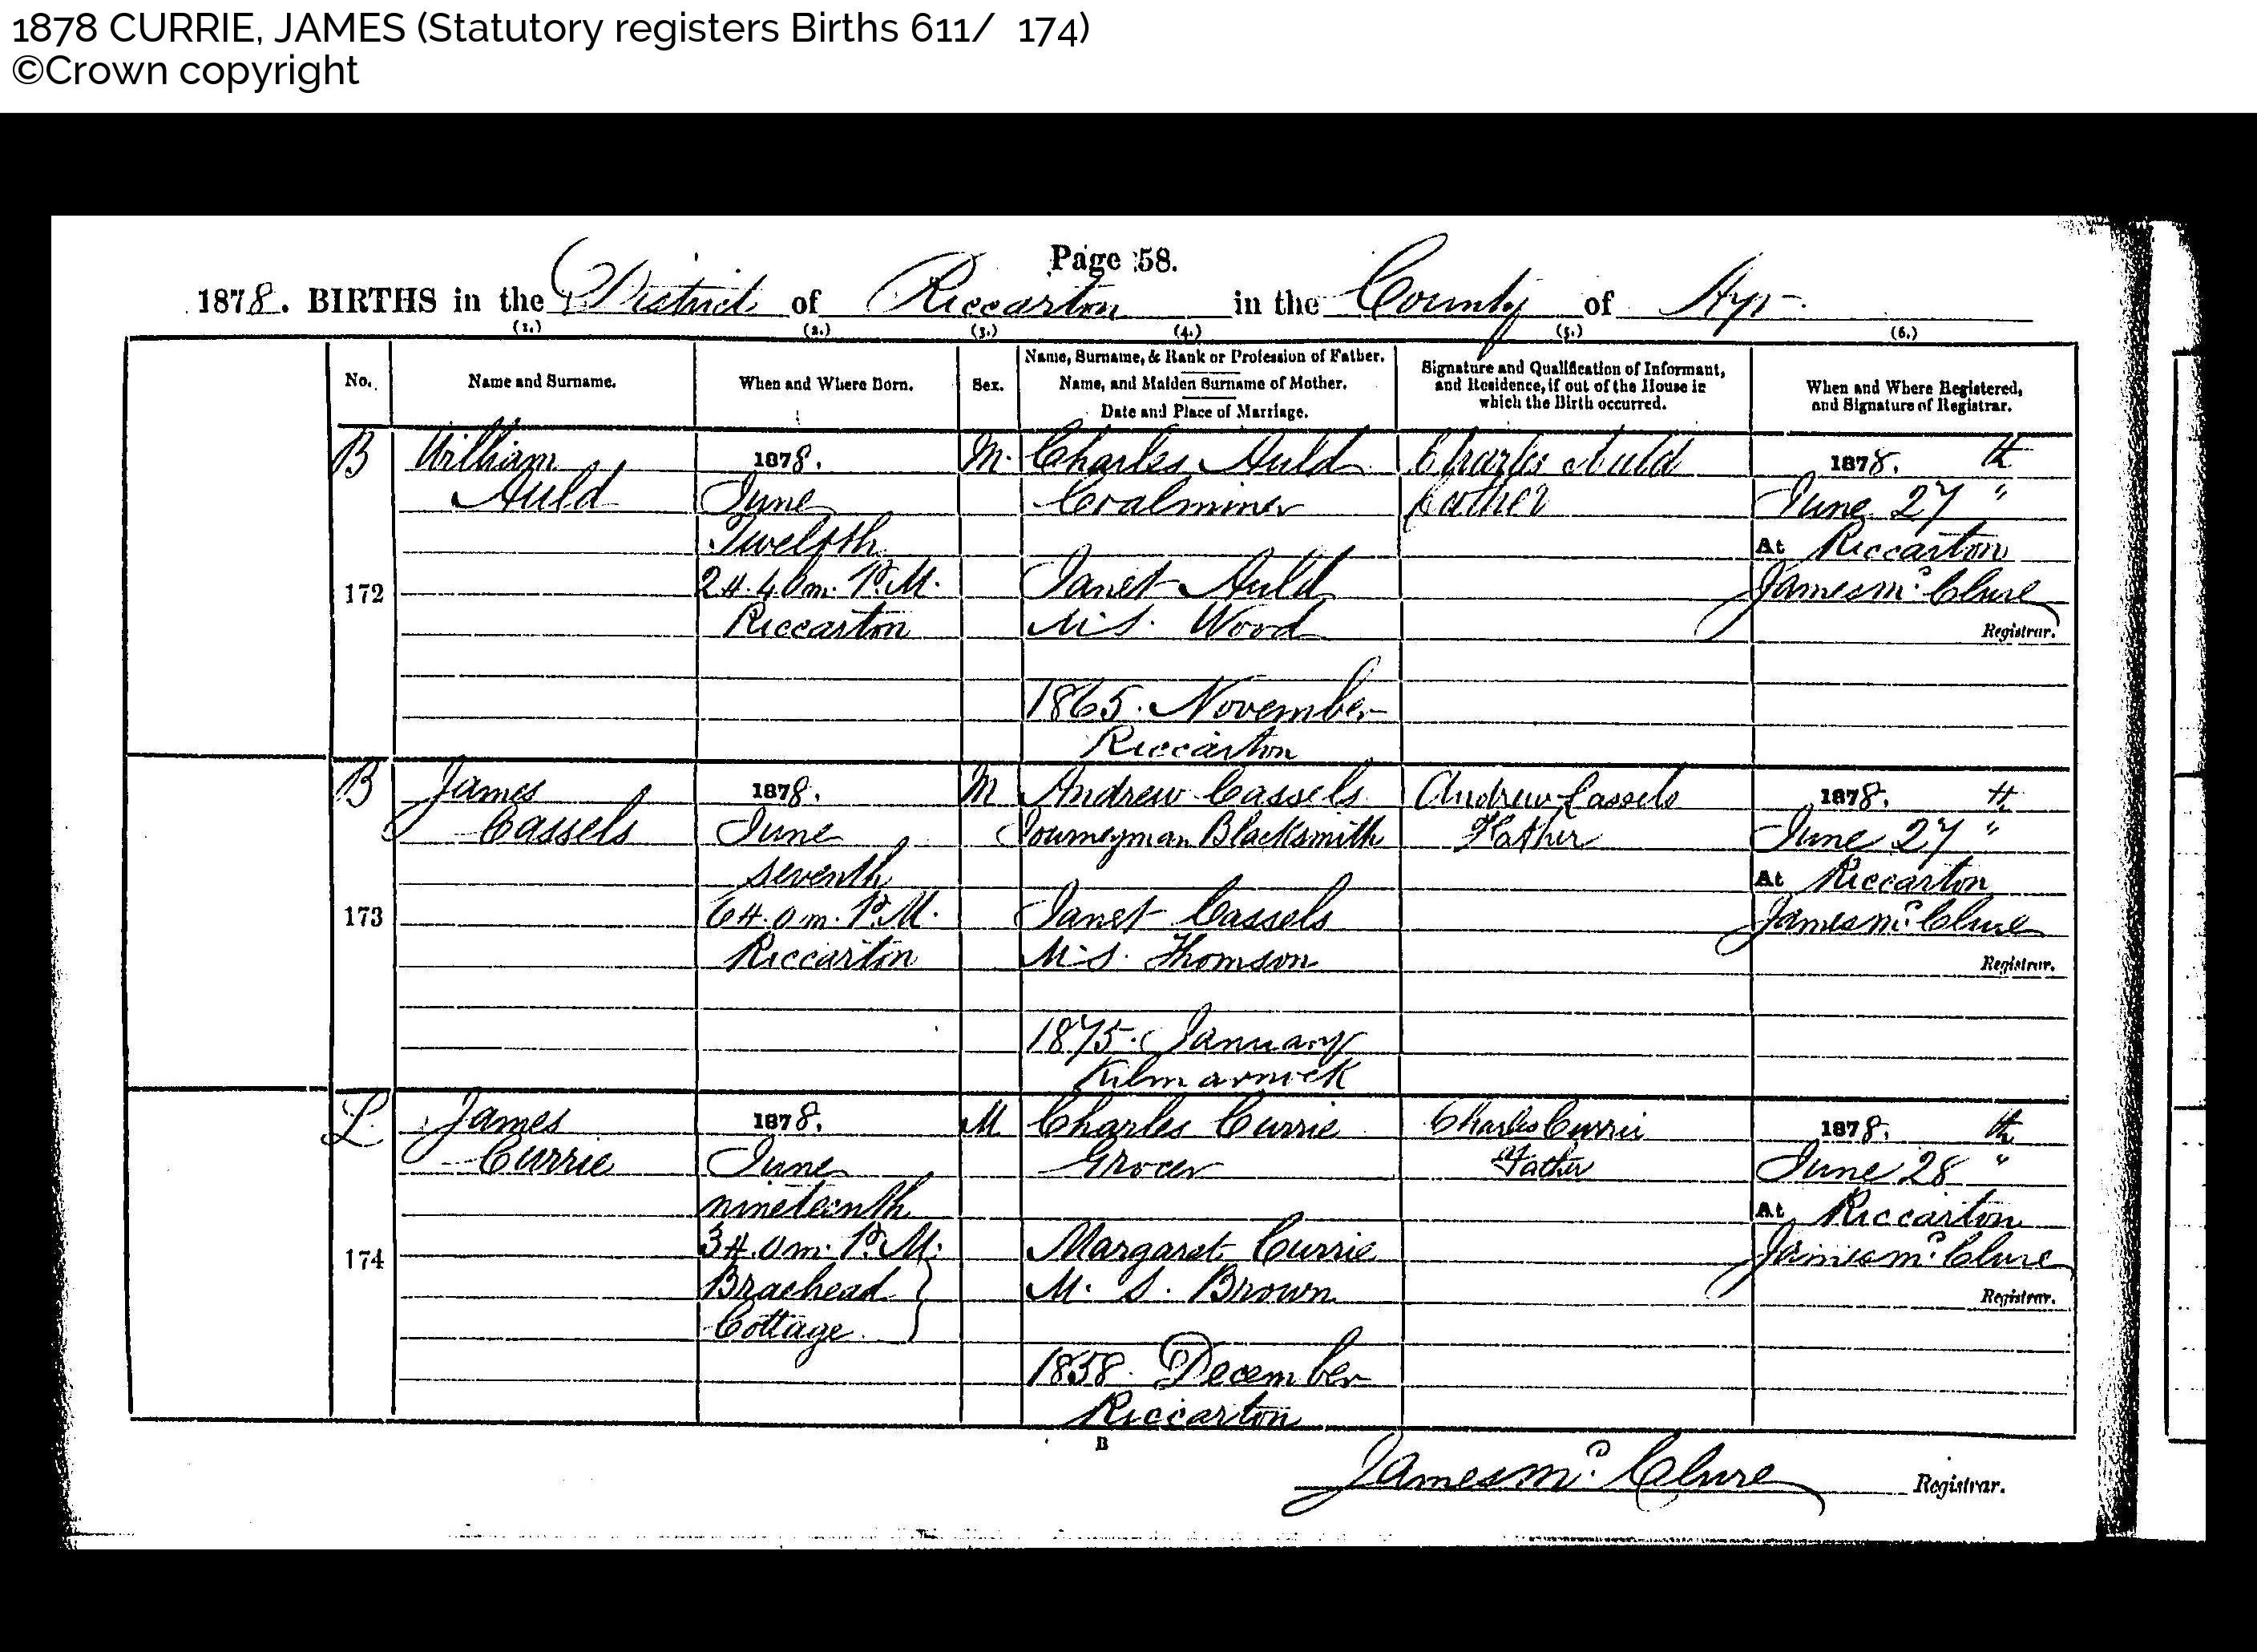 1878 CURRIE, JAMES (Statutory registers Births 611/ 174)
©Crown copyright
Page 58.
1878. BIRTHS in the District of Riccarton in the County of Ayr
(1.) (2.) (3.) (4.) (5.) (6.)
No. Name and Surname. When and Where Born. Sex. Name, Surname, & Rank or Profession of Father.
Name, and Maiden Surname of Mother.
Date and Place of Marriage.
Signature and Qualification of Informant,
and Residence, if out of the House in
which the Birth occurred.
When and Where Registered,
and Signature of Registrar.
B
172
William
Auld
1878.
June
Twelfth
2 H. 40 m. P.M.
Riccarton
M.
Charles Auld
Coalminer
Janet Auld
M.S. Wood
1865. November
Riccarton
Charles Auld
Father
1878. th
June 27 "
At Riccarton
James McClure
Registrar.
B
173
James
Cassels
1878.
June
seventh
6 H. 0 m. P.M.
Riccarton
M
Andrew Cassels
Journeyman Blacksmith
Janet Cassels
M.S. Thomson
1875. January
Kilmarnock
Andrew Cassels
Father
1878. th
June 27 "
At Riccarton
James McClure
Registrar.
L.
174
James
Currie
1878.
June
nineteenth
3 H. 0 m. P.M.
Braehead
Cottage
M
Charles Currie
Grocer
Margaret Currie
M. S. Brown
1858. December
Riccarton
Charles Currie
Father
1878. th
June 28 "
At Riccarton
James McClure
Registrar.
B
James McClure Registrar.